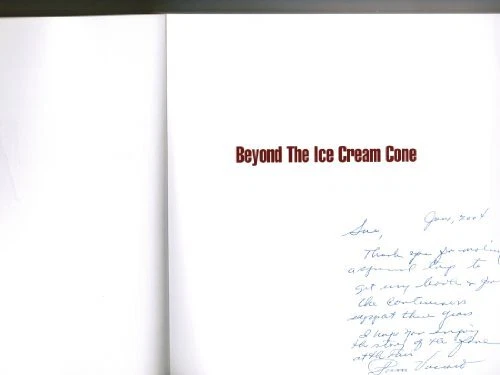 Beyond The Ice Cream Cone
June, 2004
Sue,
Thank you for making
a special trip to
get my book & for
the
support these years
I hope you enjoy
the story of the food
at the Fair
Pam